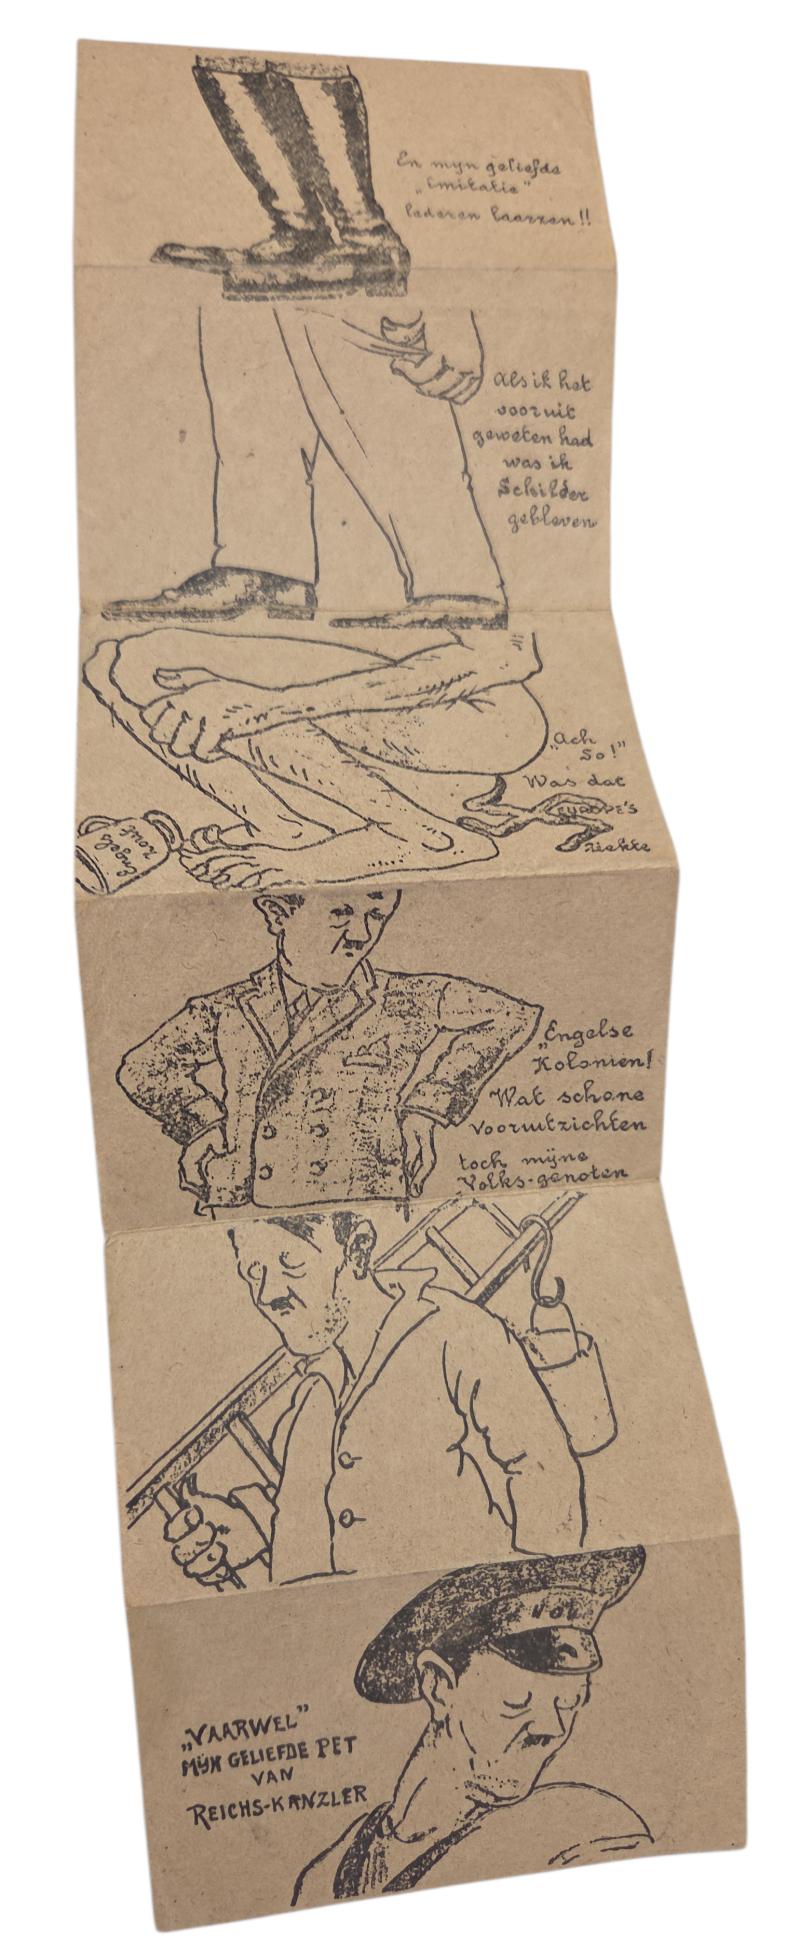 En mijn geliefde
„Imitatie"
lederen laarzen!!
Als ik het
vooruit
geweten had
was ik
Schilder
gebleven
„Ach
So!"
Was dat
EUROPE'S
ziekte
Engels
zout
„Engelse
Kolonien!
Wat schone
vooruitzichten
toch mijne
Volks-genoten
„VAARWEL"
MIJN GELIEFDE PET
VAN
REICHS-KANZLER